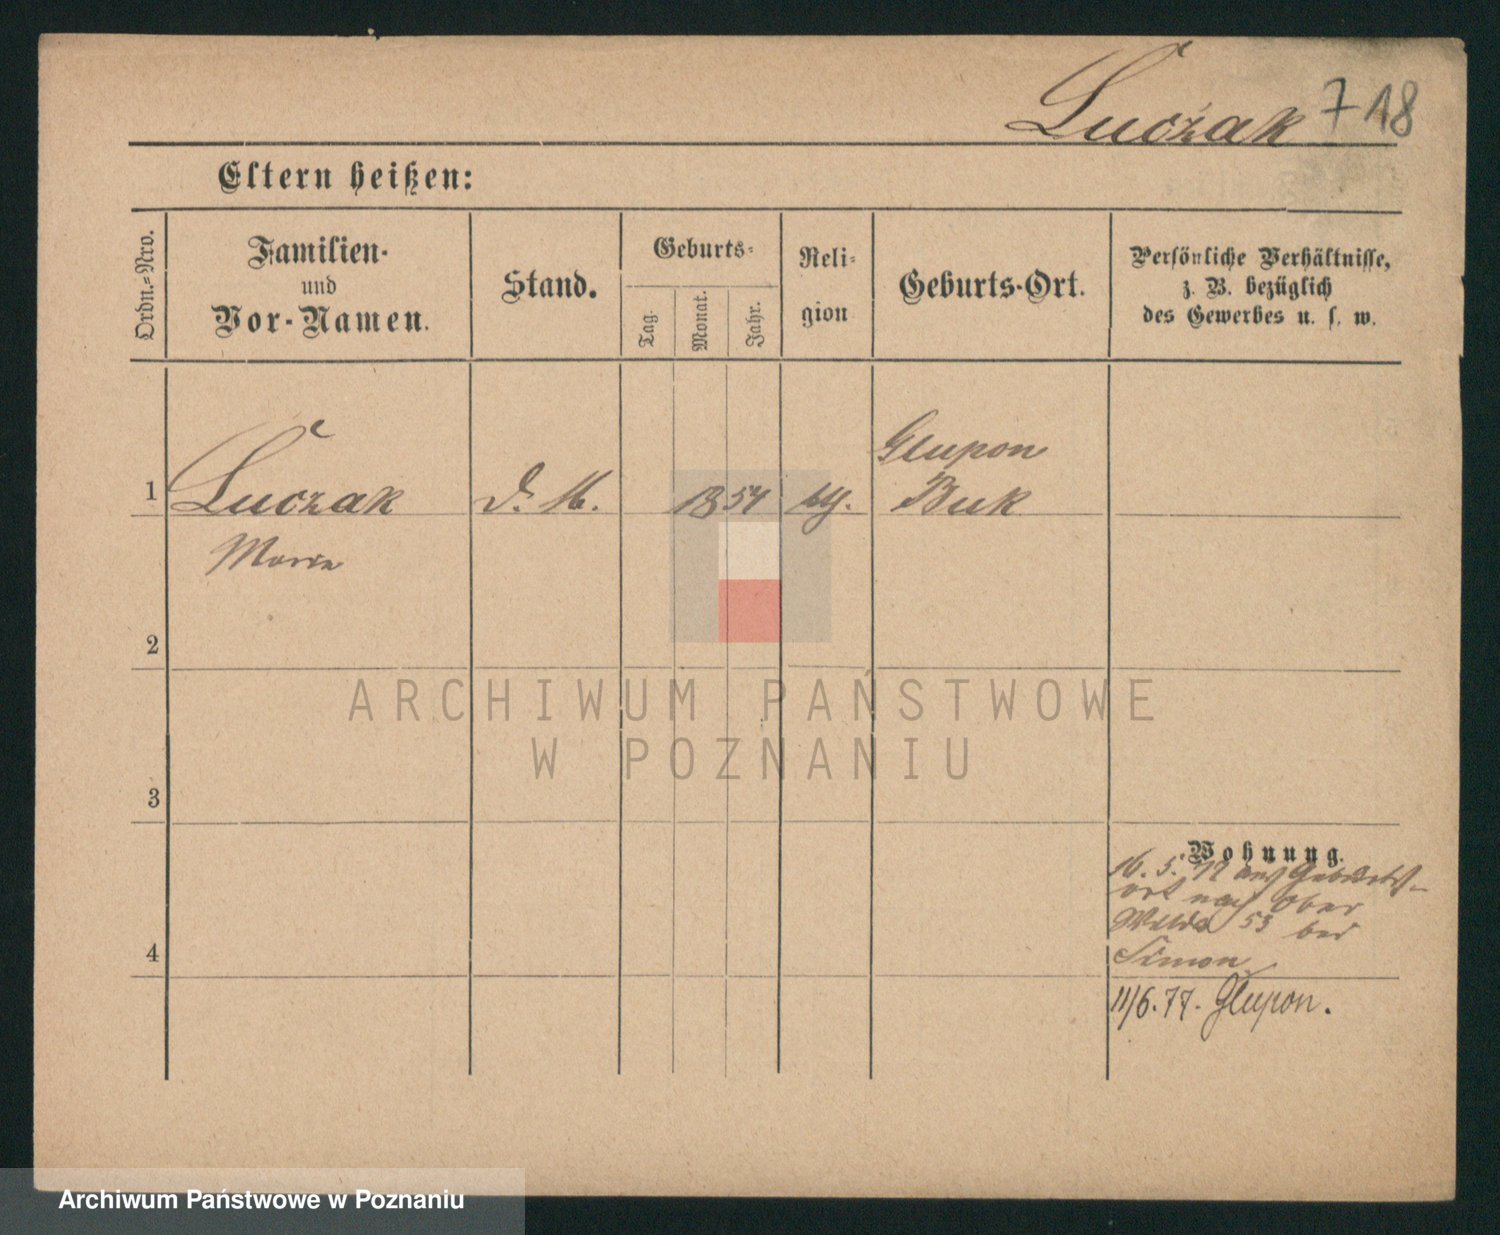 Luczak 718
Eltern heißen:
Ordn.-Nro.
Familien-
und
Vor-Namen.
Stand.
Geburts-
Tag.
Monat.
Jahr.
Reli-
gion
Geburts-Ort.
Persönliche Verhältnisse,
z. B. bezüglich
des Gewerbes u. s. w.
Glupon
1 Luczak D. M. 1854 Buk
Maria
2
ARCHIWUM PAŃSTWOWE
W POZNANIU
3
Wohnung.
16. 5. aus Geburts-
ort nach Ober
Wilda 53 bei
4 Simon
11/6.77. Glupon.
Archiwum Państwowe w Poznaniu